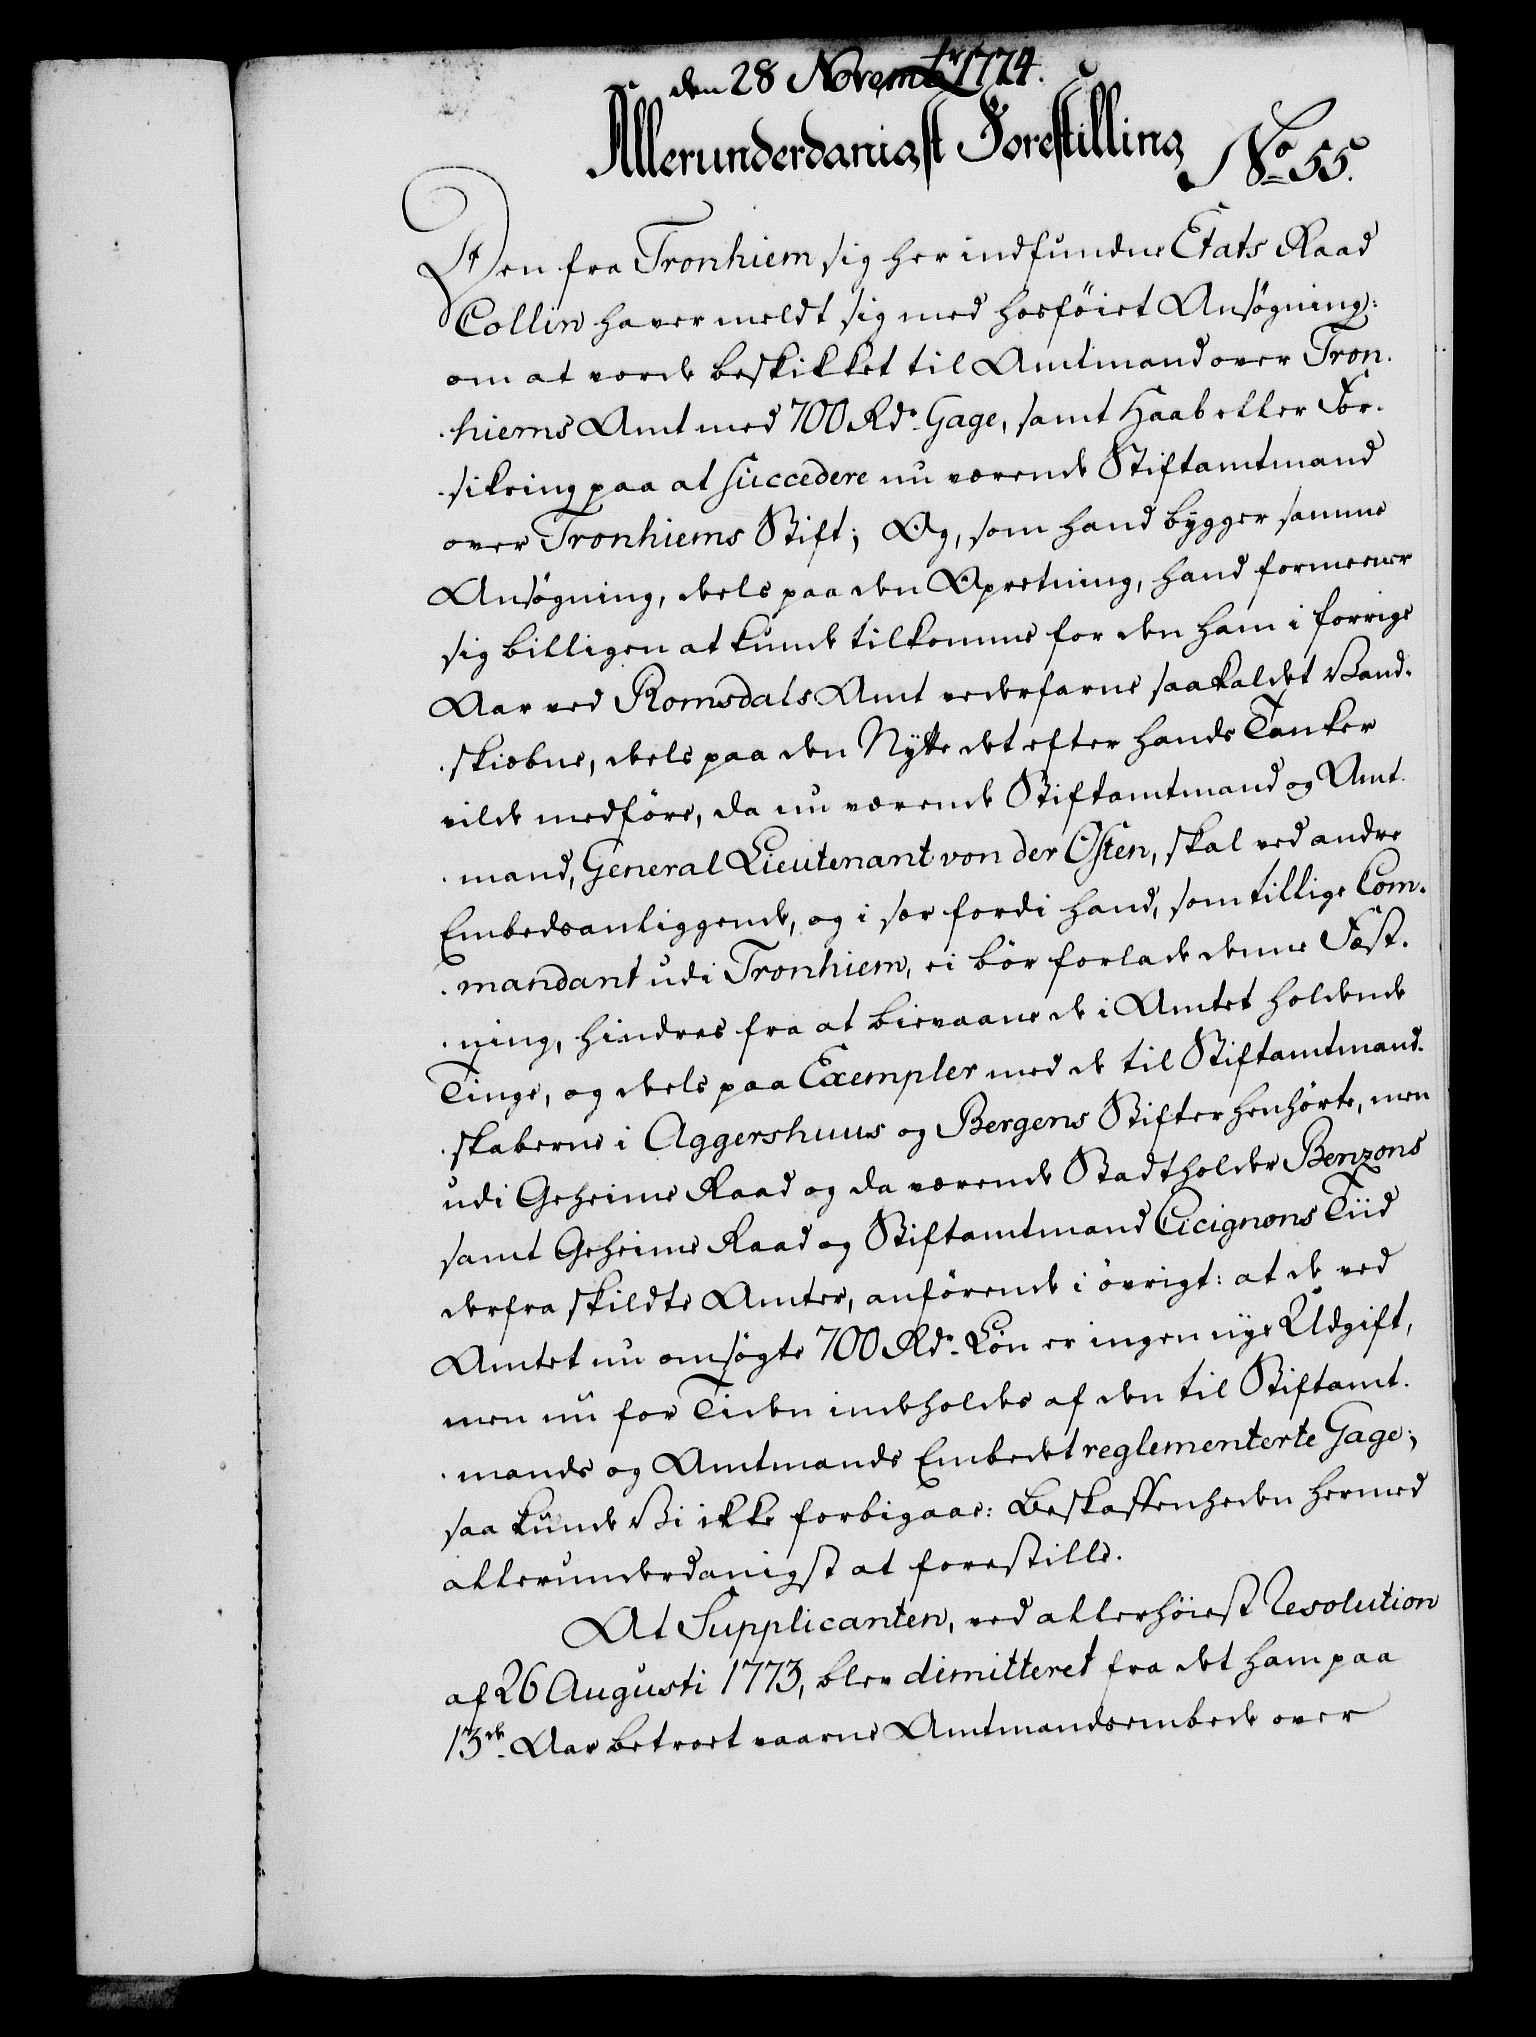 den 28 Novembr 1774.
Allerunderdanigst Forestilling
No 55.
Den fra Tronhiem sig her indfundne Etats Raad
Collin haver meldt sig med hosföiet Ansøgning:
om at vorde beskikket til Amtmand over Tron-
hiems Amt med 700 Rdr Gage, samt Haab eller For-
sikring paa at succedere nu værende Stiftamtmand
over Tronhiems Stift; Og, som hand bygger samme
Ansøgning, deels paa den Opretning, hand formeener
sig billigen at kunde tilkomme for den ham i forrige
Aar ved Romsdals Amt vederfarne saakaldet Vand-
skiæbne, deels paa den Nytte det efter hands Tanker
vilde medföre, da nu værende Stiftamtmand og Amt-
mand, General Lieutenant von der Osten, skal ved andre
Embedsanliggende, og i sær fordi hand, som tillige Com-
mandant udi Tronhiem, ei bör forlade denne Fæst-
ning, hindres fra at bievaane de i Amtet holdende
Tinge, og deels paa Exempler med de til Stiftamtmand-
skaberne i Aggershuus og Bergens Stifter henhörte, men
udi Geheime Raad og da værende Stadtholder Benzons
samt Geheime Raad og Stiftamtmand Cicignons Tiid
derfra skildte Amter, anförende i övrigt: at de ved
Amtet nu omsøgte 700 Rdr Løn er ingen nye Udgift,
men nu for Tiden indeholdes af den til Stiftamt-
mands og Amtmands Embedet reglementerte Gage;
saa kunde Vi ikke forbigaae: Beskaffenheden hermed
allerunderdanigst at forestille.
At Supplicanten, ved allerhöiest Resolution
af 26 Augusti 1773, blev dimitteret fra det ham paa
13de Aar betroet vaarne Amtmandsembede over